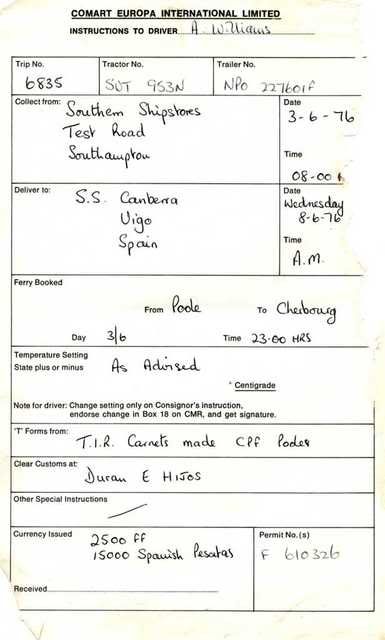 COMART EUROPA INTERNATIONAL LIMITED
INSTRUCTIONS TO DRIVER A. Williams
Trip No. Tractor No. Trailer No.
6835 SUT 953N NPO 227601F
Collect from: Southern Shipstores
Test Road
Southampton
Date
3-6-76
Time
08-00
Deliver to: S.S. Canberra
Vigo
Spain
Date
Wednesday
8-6-76
Time
A.M.
Ferry Booked
From Poole To Cherbourg
Day 3/6 Time 23.00 HRS
Temperature Setting
State plus or minus As Advised
° Centigrade
Note for driver: Change setting only on Consignor's instruction,
endorse change in Box 18 on CMR, and get signature.
'T' Forms from:
T.I.R. Carnets made CPF
Clear Customs at:
Duran E HIJOS
Other Special Instructions
Currency Issued 2500 FF
15000 Spanish Pesatas
Permit No.(s)
F 610326
Received